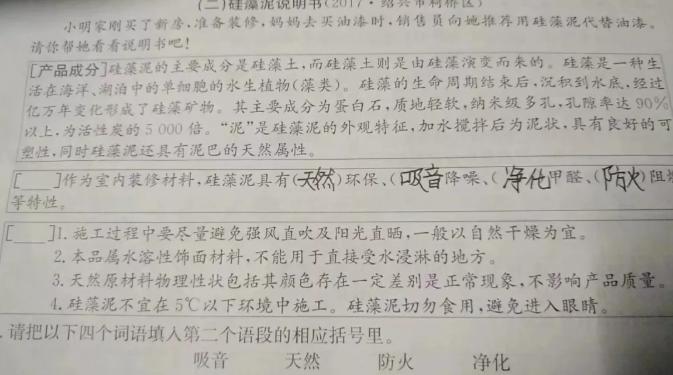 (二)硅藻泥说明书(2017·绍兴市柯桥区)
小明家刚买了新房,准备装修,妈妈去买油漆时,销售员向她推荐用硅藻泥代替油漆。
请你帮她看看说明书吧!
[产品成分]硅藻泥的主要成分是硅藻土,而硅藻土则是由硅藻演变而来的。硅藻是一种生
活在海洋、湖泊中的单细胞的水生植物(藻类)。硅藻的生命周期结束后,沉积到水底,经过
亿万年变化形成了硅藻矿物。其主要成分为蛋白石,质地轻软,纳米级多孔,孔隙率达90%
以上,为活性炭的5 000倍。“泥”是硅藻泥的外观特征,加水搅拌后为泥状,具有良好的可
塑性,同时硅藻泥还具有泥巴的天然属性。
[ ]作为室内装修材料,硅藻泥具有(天然)环保、(吸音)降噪、(净化)甲醛、(防火)阻燃
等特性。
[ ]1.施工过程中要尽量避免强风直吹及阳光直晒,一般以自然干燥为宜。
2.本品属水溶性饰面材料,不能用于直接受水浸淋的地方。
3.天然原材料物理性状包括其颜色存在一定差别是正常现象,不影响产品质量。
4.硅藻泥不宜在5℃以下环境中施工。硅藻泥切勿食用,避免进入眼睛。
.请把以下四个词语填入第二个语段的相应括号里。
吸音 天然 防火 净化